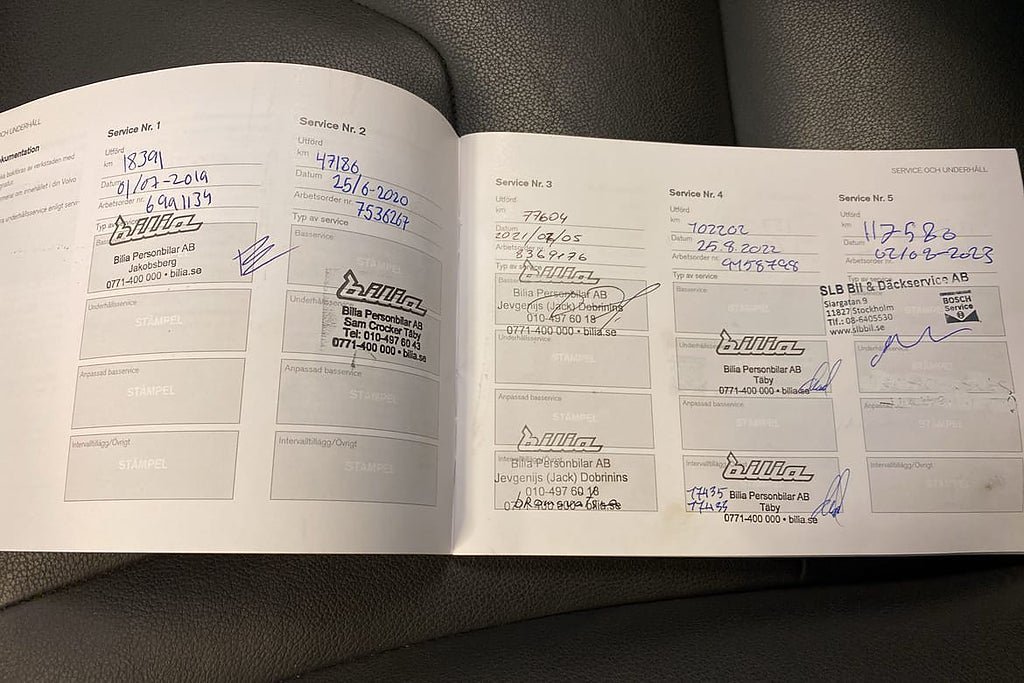 OCH UNDERHÅLL
Service Nr. 1
Utförd
km 18391
Datum 01/07-2019
Arbetsorder nr. 6991134
Typ av service
bilia
Bilia Personbilar AB
Jakobsberg
0771-400 000 • bilia.se
Underhållsservice
STÄMPEL
Anpassad basservice
STÄMPEL
Intervalltillägg/Övrigt
STÄMPEL
Service Nr. 2
Utförd
km 47186
Datum 25/6-2020
Arbetsorder nr. 7536267
Typ av service
Basservice
STÄMPEL
Underhållsservice
bilia
Bilia Personbilar AB
Sam Crocker Täby
Tel: 010-497 60 43
0771-400 000 • bilia.se
Anpassad basservice
STÄMPEL
Intervalltillägg/Övrigt
STÄMPEL
SERVICE OCH UNDERHÅLL
Service Nr. 3
Utförd
km 77604
Datum 2021/07/05
Arbetsorder nr. 8369176
Typ av service
bilia
Bilia Personbilar AB
Jevgenijs (Jack) Dobrinins
010-497 60 18
0771-400 000 • bilia.se
Underhållsservice
STÄMPEL
Anpassad basservice
STÄMPEL
bilia
Intervalltillägg/Övrigt
Bilia Personbilar AB
Jevgenijs (Jack) Dobrinins
010-497 60 18
0771-400 000 • bilia.se
Service Nr. 4
Utförd
km 102202
Datum 25.8.2022
Arbetsorder nr. 9158798
Typ av service
Basservice
STÄMPEL
Underhållsservice
bilia
Bilia Personbilar AB
Täby
0771-400 000 • bilia.se
Anpassad basservice
STÄMPEL
Intervalltillägg
bilia
17435 Bilia Personbilar AB
17435 Täby
0771-400 000 • bilia.se
Service Nr. 5
Utförd
km 117580
Datum 02/02-2023
Arbetsorder nr.
Typ av service
SLB Bil & Däckservice AB
Siargatan 9
11827 Stockholm
Tlf.: 08-6405530
www.slbbil.se
BOSCH
Service
Underhållsservice
STÄMPEL
Anpassad basservice
STÄMPEL
Intervalltillägg/Övrigt